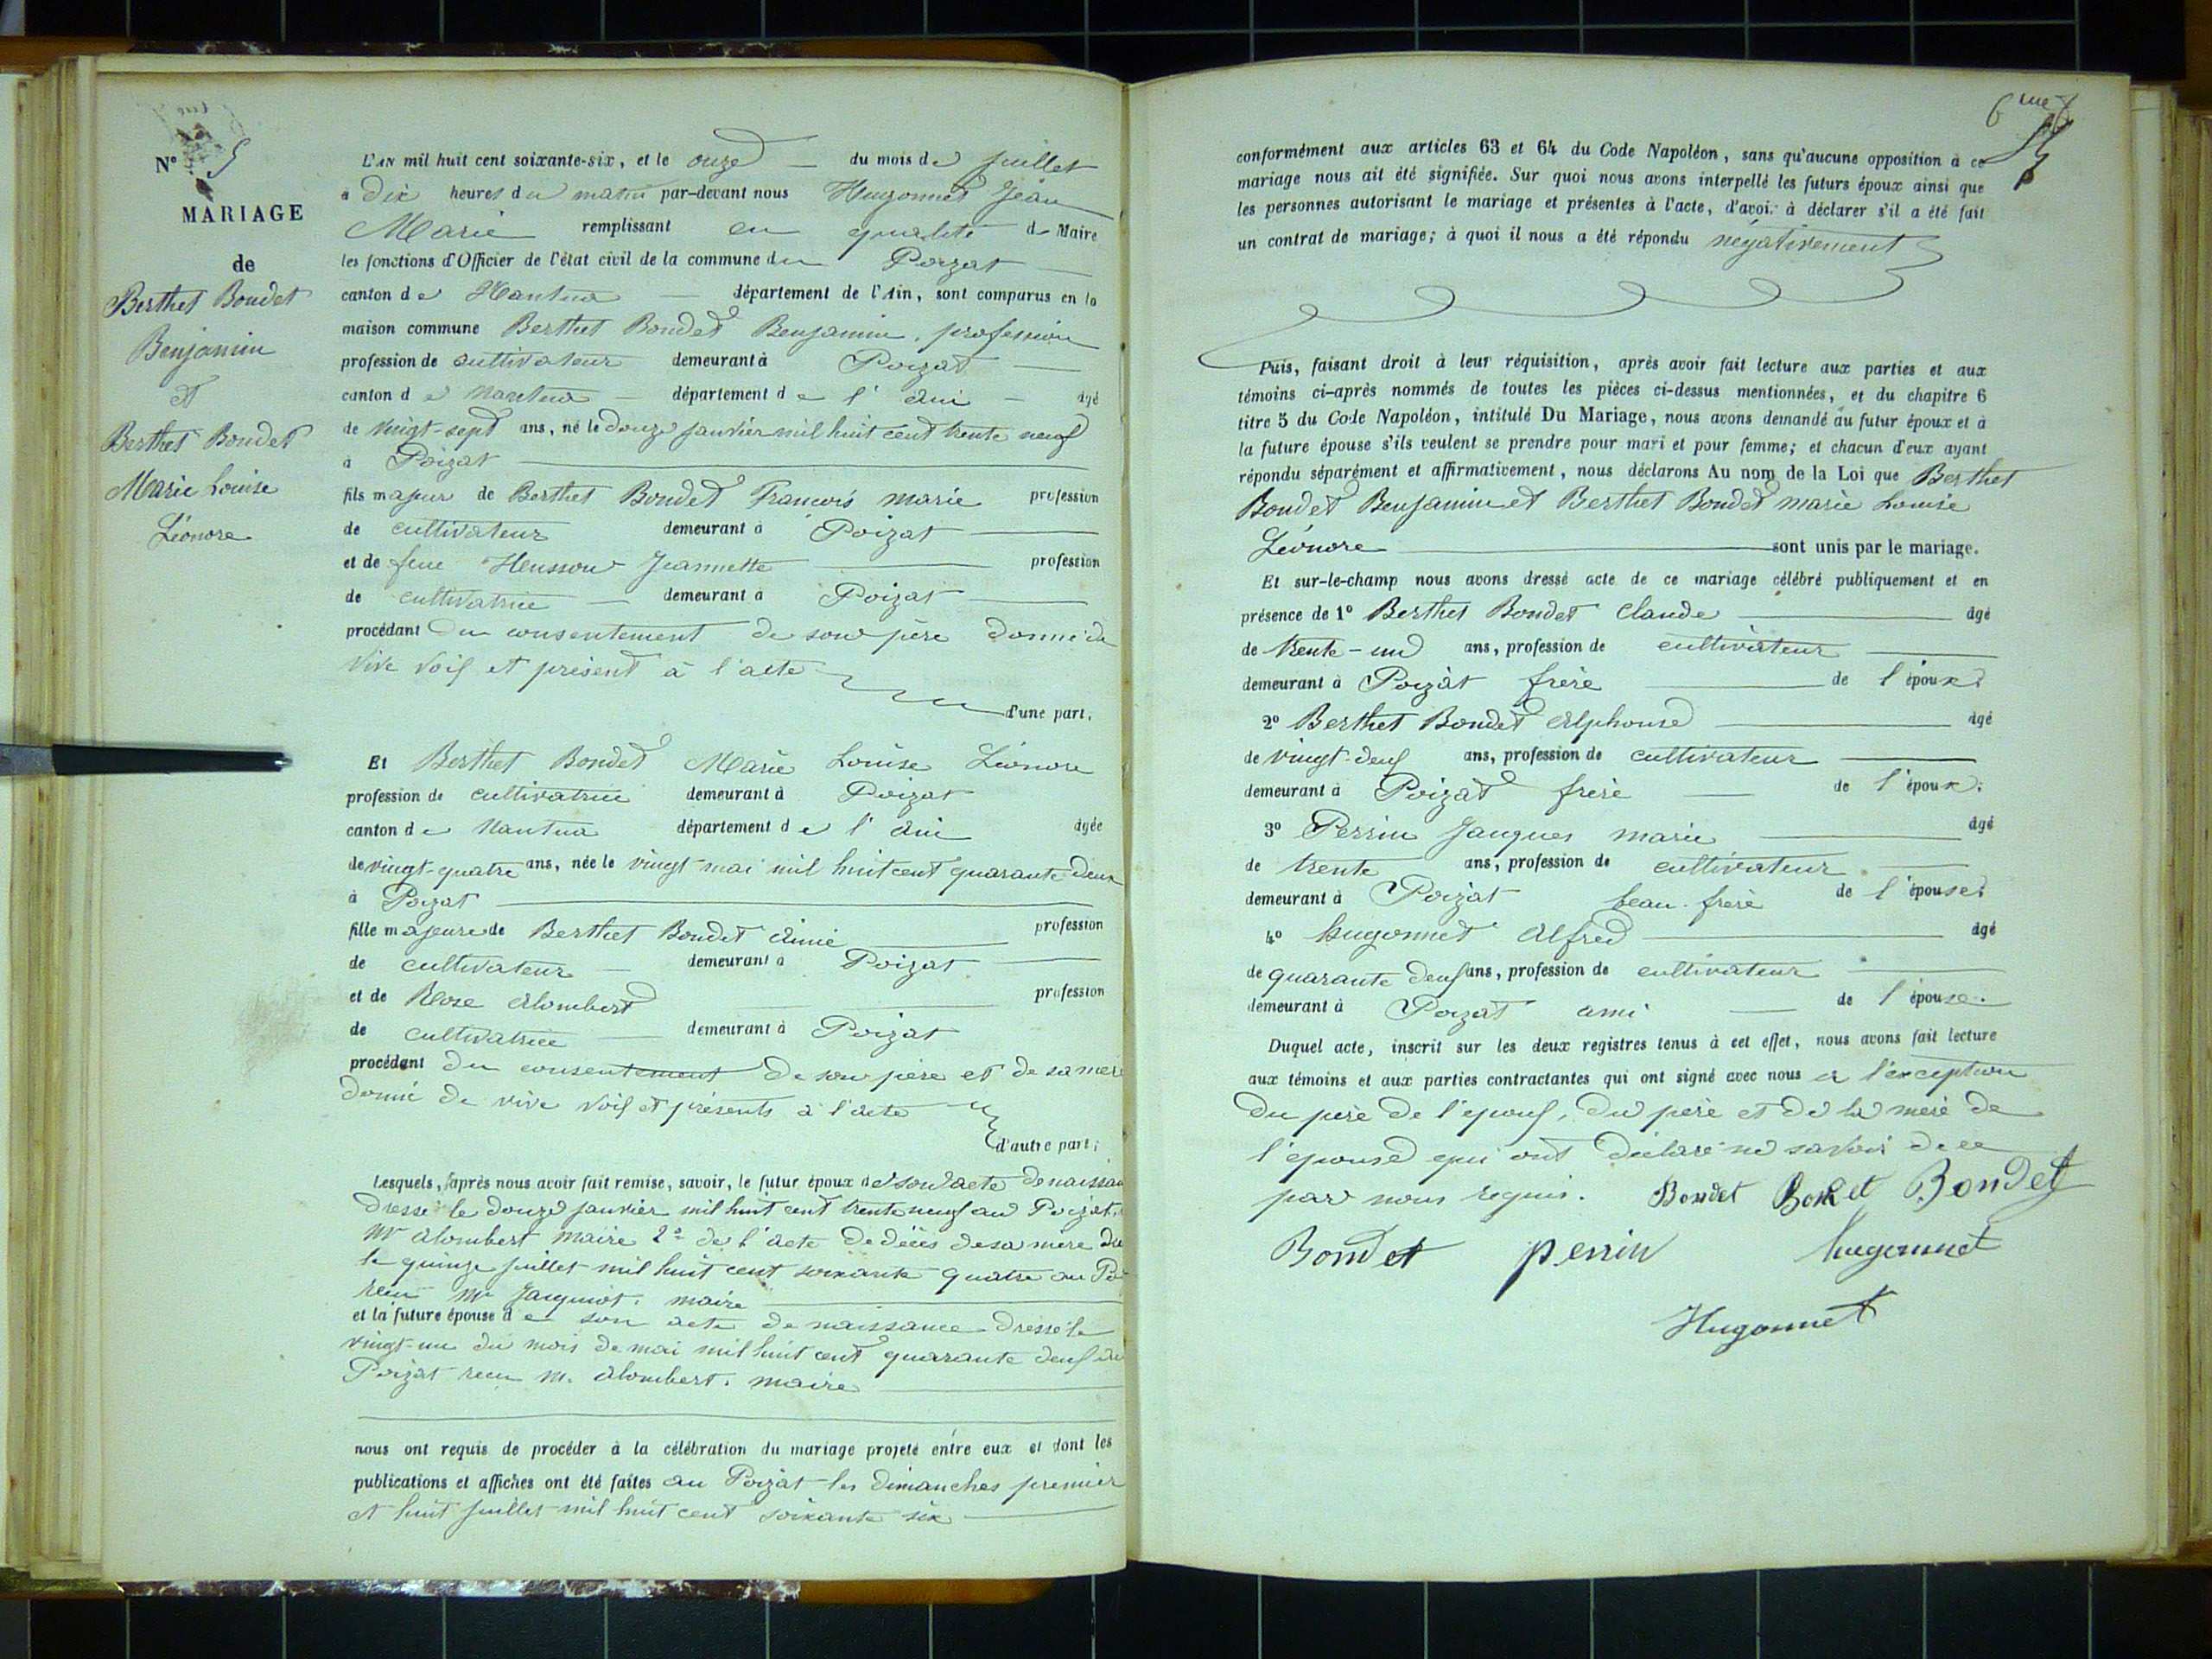 N° 5
MARIAGE
de
Berthet Bondet
Benjamin
et
Berthet Bondet
Marie Louise
Léonore
L'AN mil huit cent soixante-six, et le onze du mois de Juillet
à Dix heures du matin par-devant nous Hugonnet Jean
Marie remplissant en qualité de Maire
les fonctions d'Officier de l'état civil de la commune du Poizat
canton de Nantua département de l'Ain, sont comparus en la
maison commune Berthet Bondet Benjamin, profession
profession de cultivateur demeurant à Poizat
canton de Nantua département de l'Ain âgé
de vingt-sept ans, né le douze janvier mil huit cent trente neuf
à Poizat
fils majeur de Berthet Bondet François marie profession
de cultivateur demeurant à Poizat
et de feue Jeannette profession
de cultivatrice demeurant à Poizat
procédant du consentement de son père donné de
vive voix et présent à l'acte
d'une part,
Et Berthet Bondet Marie Louise Léonore
profession de cultivatrice demeurant à Poizat
canton de Nantua département de l'Ain âgée
de vingt-quatre ans, née le vingt mai mil huit cent quarante deux
à Poizat
fille majeure de Berthet Bondet Aimé profession
de cultivateur demeurant à Poizat
et de Rose Alombert profession
de cultivatrice demeurant à Poizat
procédant du consentement de son père et de sa mère
donné de vive voix et présents à l'acte
d'autre part;
Lesquels, après nous avoir fait remise, savoir, le futur époux de son acte de naissan
dressé le douze janvier mil huit cent trente neuf au Poizat,
Mr Alombert maire 2° de l'acte de décès de sa mère
le quinze juillet mil huit cent soixante quatre au Poi
reçu Mr Jacquiot, maire
et la future épouse de son acte de naissance dressé le
vingt-un du mois de mai mil huit cent quarante deux au
Poizat reçu M. Alombert, maire
nous ont requis de procéder à la célébration du mariage projeté entre eux et dont les
publications et affiches ont été faites au Poizat les dimanches premier
et huit juillet mil huit cent soixante six
6me
conformément aux articles 63 et 64 du Code Napoléon, sans qu'aucune opposition à ce
mariage nous ait été signifiée. Sur quoi nous avons interpellé les futurs époux ainsi que
les personnes autorisant le mariage et présentes à l'acte, d'avoir à déclarer s'il a été fait
un contrat de mariage; à quoi il nous a été répondu négativement
Puis, faisant droit à leur réquisition, après avoir fait lecture aux parties et aux
témoins ci-après nommés de toutes les pièces ci-dessus mentionnées, et du chapitre 6
titre 5 du Code Napoléon, intitulé Du Mariage, nous avons demandé au futur époux et à
la future épouse s'ils veulent se prendre pour mari et pour femme; et chacun d'eux ayant
répondu séparément et affirmativement, nous déclarons Au nom de la Loi que Berthet
Bondet Benjamin et Berthet Bondet marie Louise
Léonore sont unis par le mariage.
Et sur-le-champ nous avons dressé acte de ce mariage célébré publiquement et en
présence de 1° Berthet Bondet Claude âgé
de trente-un ans, profession de cultivateur
demeurant à Poizat frère de l'époux
2° Berthet Bondet Alphonse âgé
de vingt-deux ans, profession de cultivateur
demeurant à Poizat frère de l'époux.
3° Perrin Jauques marie âgé
de trente ans, profession de cultivateur
demeurant à Poizat beau-frère de l'épouse.
4° hugonnet Alfred âgé
de quarante deux ans, profession de cultivateur
demeurant à Poizat ami de l'épouse.
Duquel acte, inscrit sur les deux registres tenus à cet effet, nous avons fait lecture
aux témoins et aux parties contractantes qui ont signé avec nous à l'exception
du père de l'époux, du père et de la mère de
l'épouse qui ont déclaré ne savoir de ce
par nous requis. Bondet Bondet Bondet
Bondet perrin hugonnet
Hugonnet